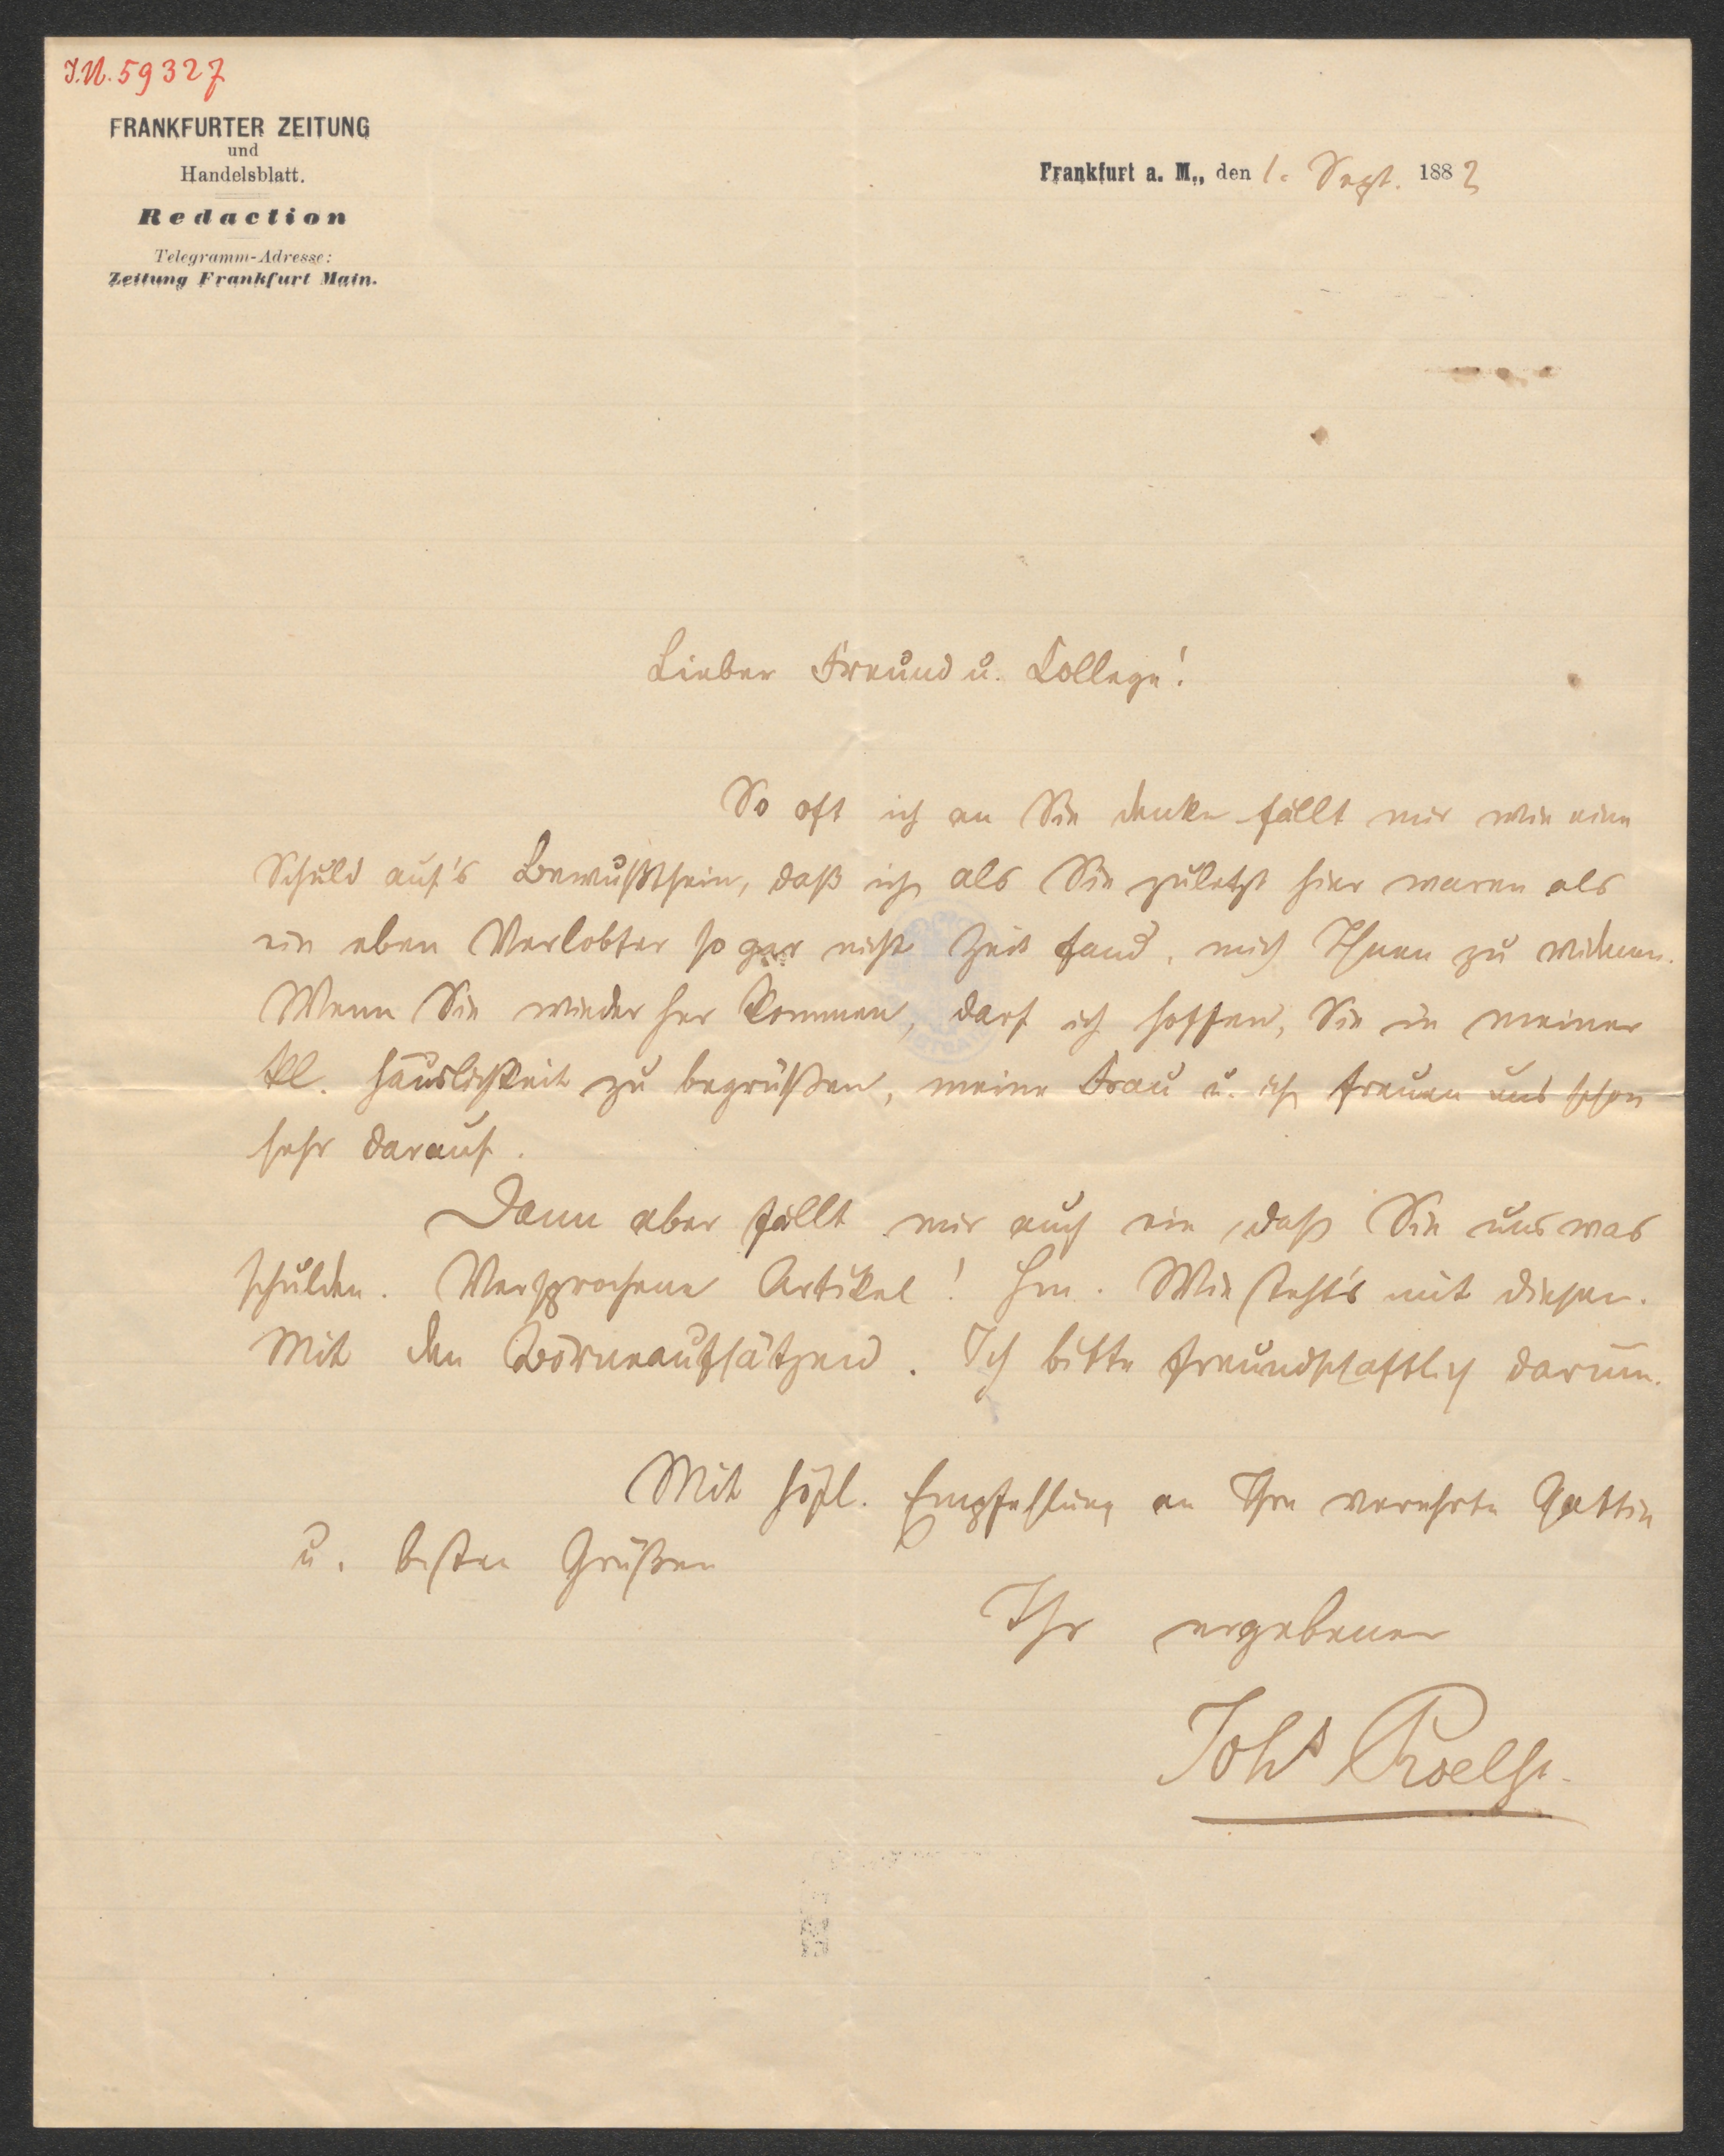 I.N. 59327
FRANKFURTER ZEITUNG
und
Handelsblatt.
Redaction
Telegramm-Adresse:
Zeitung Frankfurt Main.
Frankfurt a. M., den 1. Sept. 1883
Lieber Freund u. College!
So oft ich an Sie denke fällt mir wie eine
Schuld auf's Bewußtsein, daß ich als Sie zuletzt hier waren als
ein eben Verlobter so gar nicht Zeit fand, mich Ihnen zu widmen.
Wenn Sie wieder her kommen, darf ich hoffen, Sie in meiner
kl. Häuslichkeit zu begrüßen, meine Frau u. ich freuen uns schon
sehr darauf.
Dann aber fällt mir auch ein, daß Sie uns was
schulden. Versprochene Artikel! Hm. Wie steht's mit diesen.
Mit den Börneaufsätzen. Ich bitte freundschaftlich darum.
Mit höfl. Empfehlung an Ihre verehrte Gattin
u. besten Grüßen
Ihr ergebener
Johs Proelss.